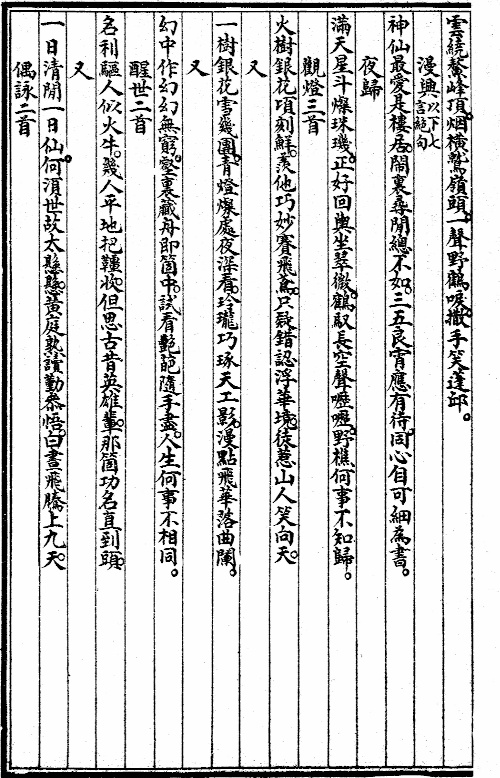 雲繞鰲峰頂。烟橫鷲嶺頭。一聲野鶴唳。撒手笑蓬邱。
漫興以下七言絕句
神仙最愛是樓居。鬧裏尋閒總不如。三五良宵應有待。同心自可細為書。
夜歸
滿天星斗燦珠璣。正好回輿坐翠微。鶴馭長空聲嚦嚦。野樵何事不知歸。
觀燈三首
火樹銀花頃刻鮮。羨他巧妙賽飛鳶。只疑錯認浮華境。徒惹山人笑向天。
又
一樹銀花雪幾團。青燈燦處夜深看。玲瓏巧琢天工影。漫點飛華落曲闌。
又
幻中作幻幻無窮。壑裏藏舟即箇中。試看艷葩隨手盡。人生何事不相同。
醒世二首
名利驅人似火牛。幾人平地把韁收。但思古昔英雄輩。那箇功名直到頭。
又
一日清閒一日仙。何須世故太懸懸。黃庭熟讀勤參悟。白晝飛騰上九天。
偶詠二首